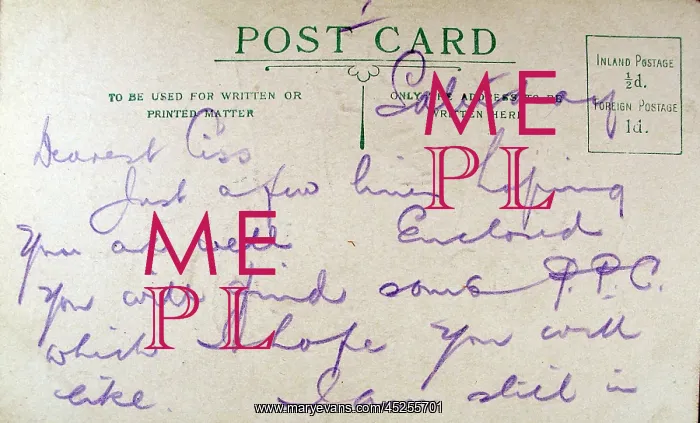 POST CARD
INLAND POSTAGE
½d.
FOREIGN POSTAGE
1d.
TO BE USED FOR WRITTEN OR
PRINTED MATTER
ONLY THE ADDRESS TO BE
WRITTEN HERE
Saturday
Dearest Ciss
Just a few lines hoping
you are well Enclosed
you will find some P.P.C.
which I hope you will
like. I am still in
ME
PL
ME
PL
www.maryevans.com/45255701